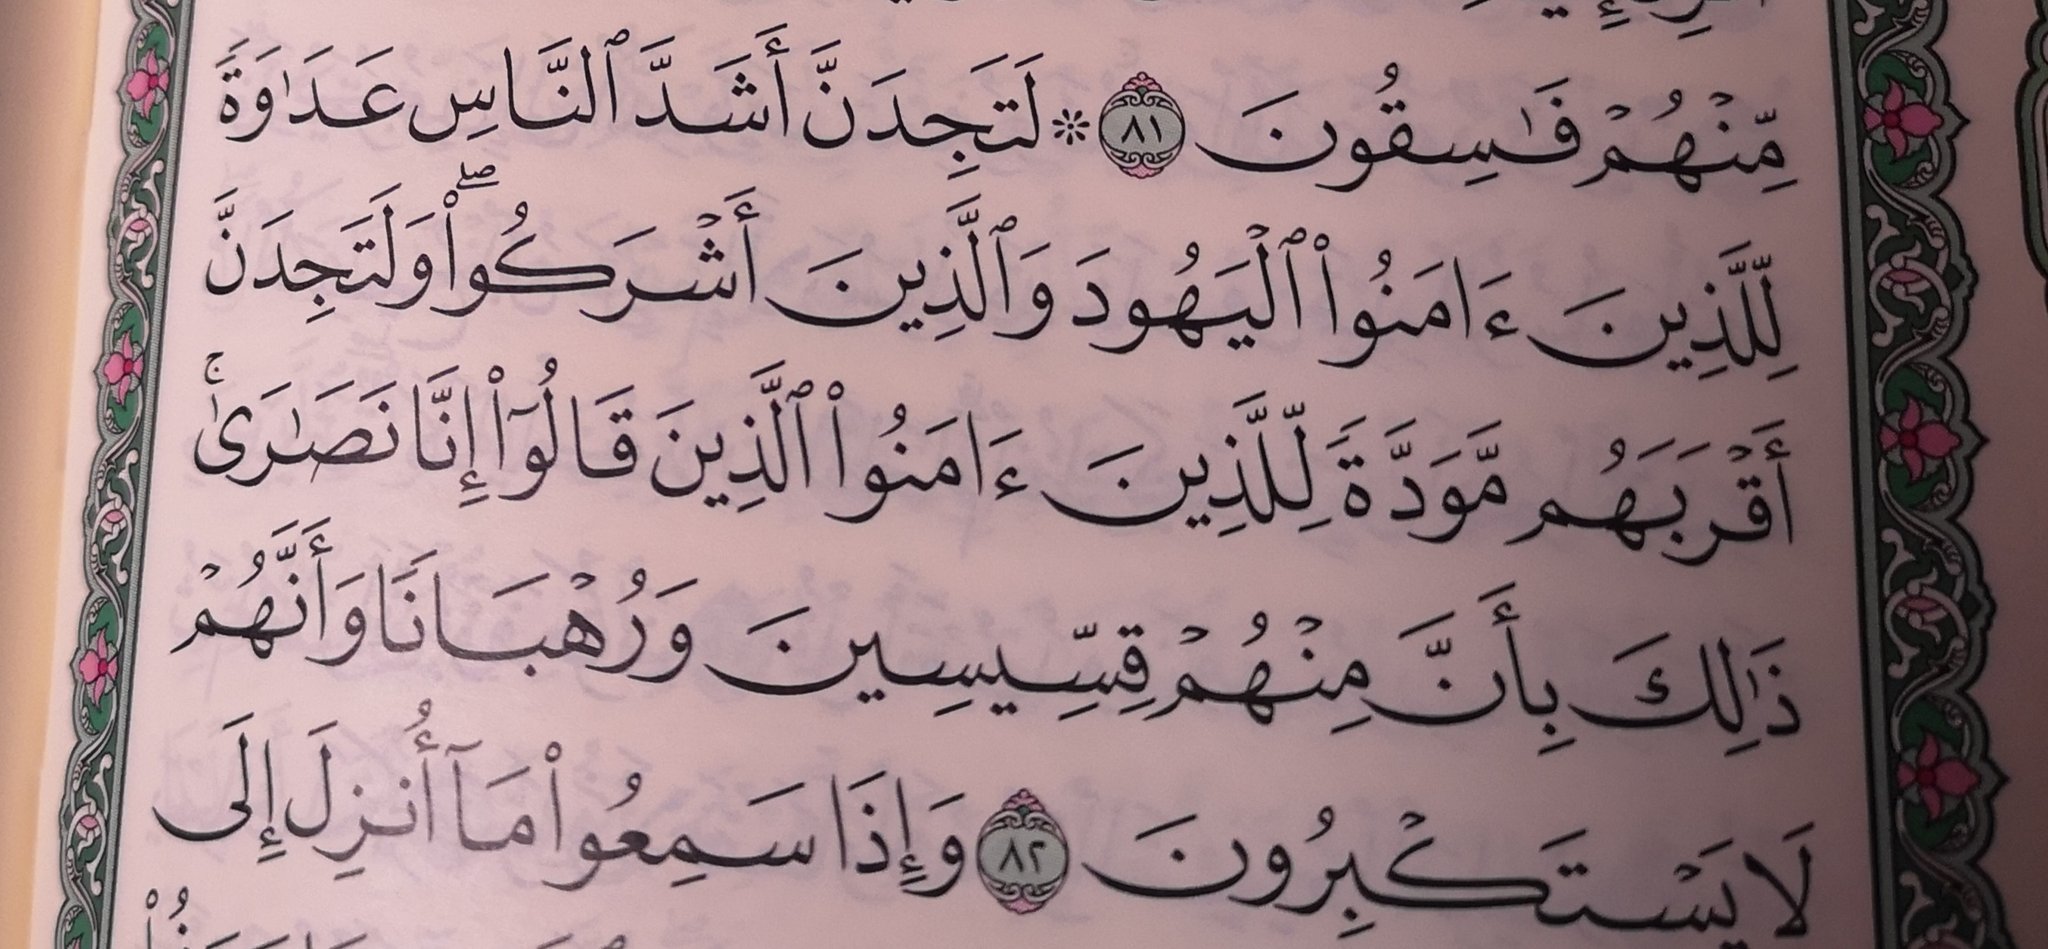 مِّنۡهُمۡ فَٰسِقُونَ ٨١ ۞ لَتَجِدَنَّ أَشَدَّ ٱلنَّاسِ عَدَٰوَةٗ
لِّلَّذِينَ ءَامَنُواْ ٱلۡيَهُودَ وَٱلَّذِينَ أَشۡرَكُواْۖ وَلَتَجِدَنَّ
أَقۡرَبَهُم مَّوَدَّةٗ لِّلَّذِينَ ءَامَنُواْ ٱلَّذِينَ قَالُوٓاْ إِنَّا نَصَٰرَىٰۚ
ذَٰلِكَ بِأَنَّ مِنۡهُمۡ قِسِّيسِينَ وَرُهۡبَانٗا وَأَنَّهُمۡ
لَا يَسۡتَكۡبِرُونَ ٨٢ وَإِذَا سَمِعُواْ مَآ أُنزِلَ إِلَى